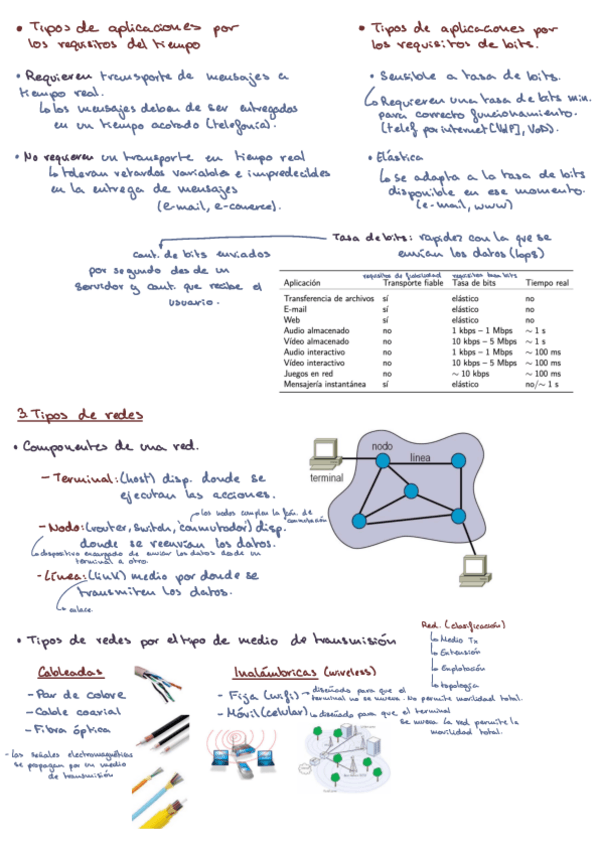 • Tipos de aplicaciones por
los requisitos del tiempo
• Requieren transporte de mensajes en
tiempo real.
↳ los mensajes deben de ser entregados
en un tiempo acotado (telefonía).
• No requieren un transporte en tiempo real
↳ toleran retardos variables e impredecibles
en la entrega de mensajes
(e-mail, e-comerce).
• Tipos de aplicaciones por
los requisitos de bits.
• Sensible a tasa de bits.
↳ Requieren una tasa de bits min.
para correcto funcionamiento.
(telef por internet [VoIP], VoD).
• Elástica
↳ se adapta a la tasa de bits
disponible en ese momento.
(e-mail, www)
Tasa de bits: rapidez con la que se
envían los datos (bps)
cant. de bits enviados
por segundo desde un
servidor y cant. que recibe el
usuario.
requisitos de fiabilidad requisitos tasa bits
Aplicación Transporte fiable Tasa de bits Tiempo real
Transferencia de archivos sí elástico no
E-mail sí elástico no
Web sí elástico no
Audio almacenado no 1 kbps – 1 Mbps ~ 1 s
Vídeo almacenado no 10 kbps – 5 Mbps ~ 1 s
Audio interactivo no 1 kbps – 1 Mbps ~ 100 ms
Vídeo interactivo no 10 kbps – 5 Mbps ~ 100 ms
Juegos en red no ~ 10 kbps ~ 100 ms
Mensajería instantánea sí elástico no/~ 1 s
3. Tipos de redes
• Componentes de una red.
– Terminal: (host) disp. donde se
ejecutan las acciones.
los nodos cumplen la fun. de
conmutación
– Nodo: (router, switch, 'conmutador') disp.
donde se reenvían los datos.
↳ dispositivo encargado de enviar los datos desde un
terminal a otro.
– Línea: (link) medio por donde se
transmiten los datos.
enlace.
nodo
linea
terminal
• Tipos de redes por el tipo de medio de transmisión
Red. (clasificación)
↳ Medio Tx
↳ Extensión
↳ Explotación
↳ topología
Cableadas
– Par de cobre
– Cable coaxial
– Fibra óptica
– Las señales electromagnéticas
se propagan por un medio
de transmisión
Inalámbricas (wireless)
– Fija (wifi) → diseñada para que el
terminal no se mueva. No permite movilidad total.
– Móvil (celular) ↳ diseñada para que el terminal
se mueva. La red permite la
movilidad total.